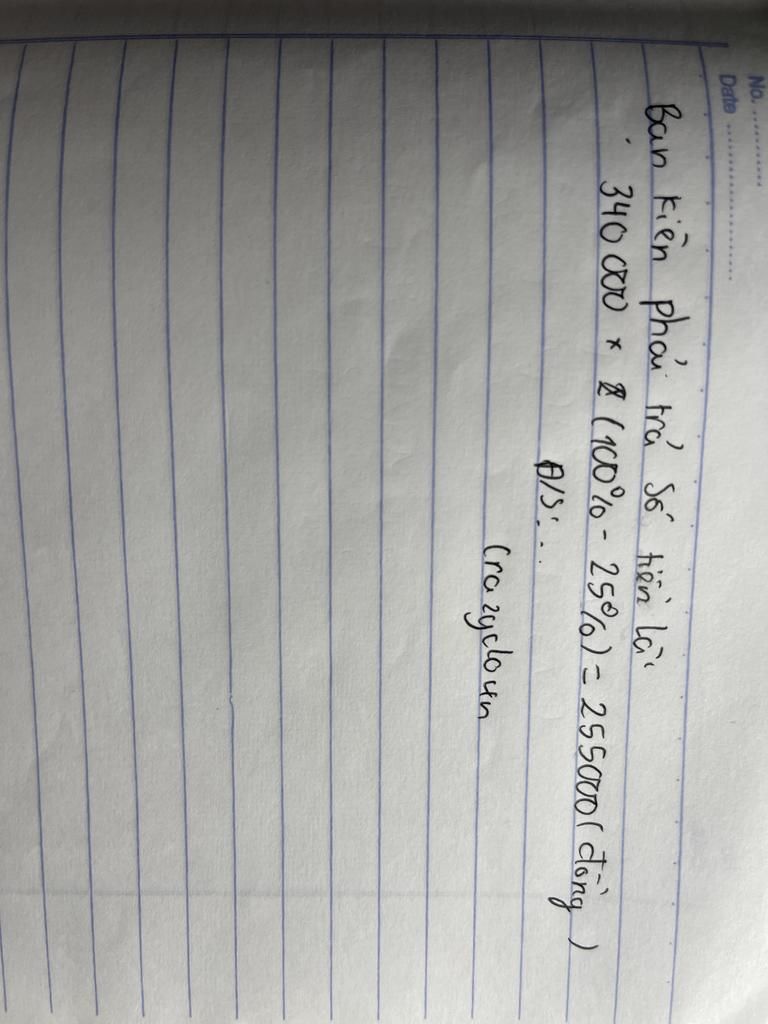 No. ............
Date ........................
Bạn Kiên phải trả số tiền là:
340 000 × (100% - 25%) = 255000 (đồng)
Đ/S: . .
Crazyclown